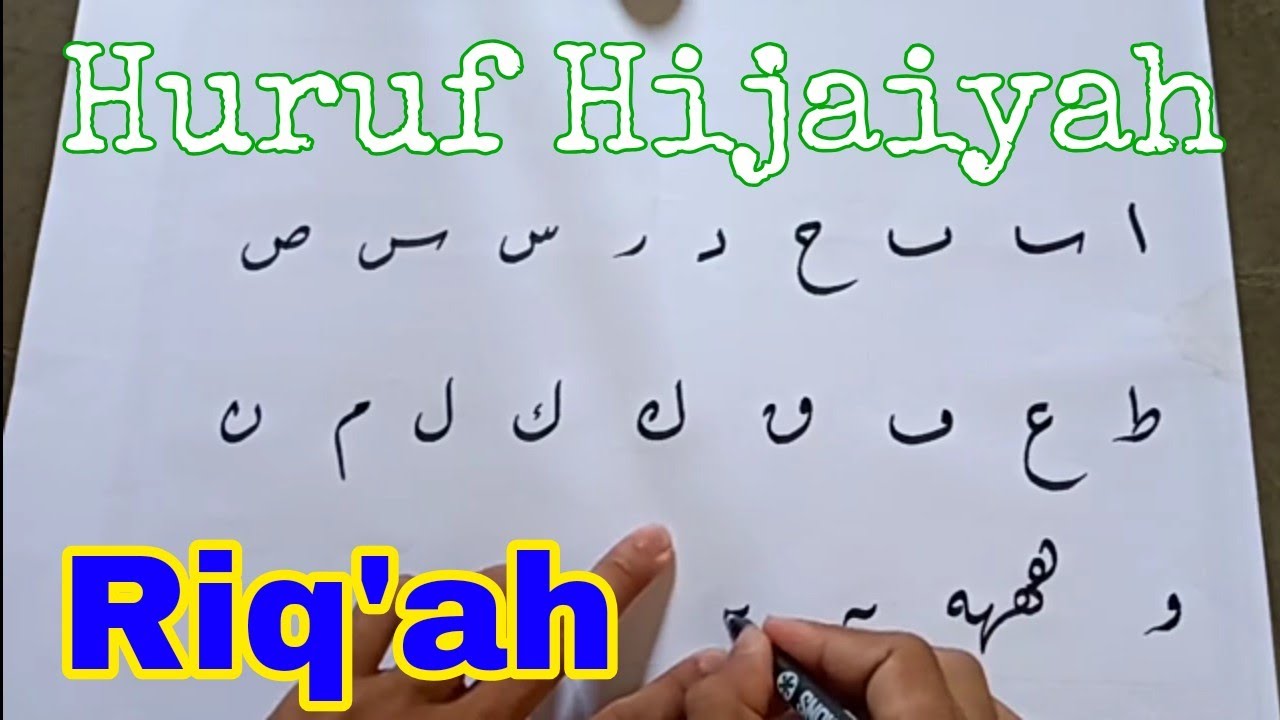 Huruf Hijaiyah
ا ٮ ٮ ح د ر س س ص
ط ع ڡ ٯ ك ك ل م ن
و ههه
Riq'ah